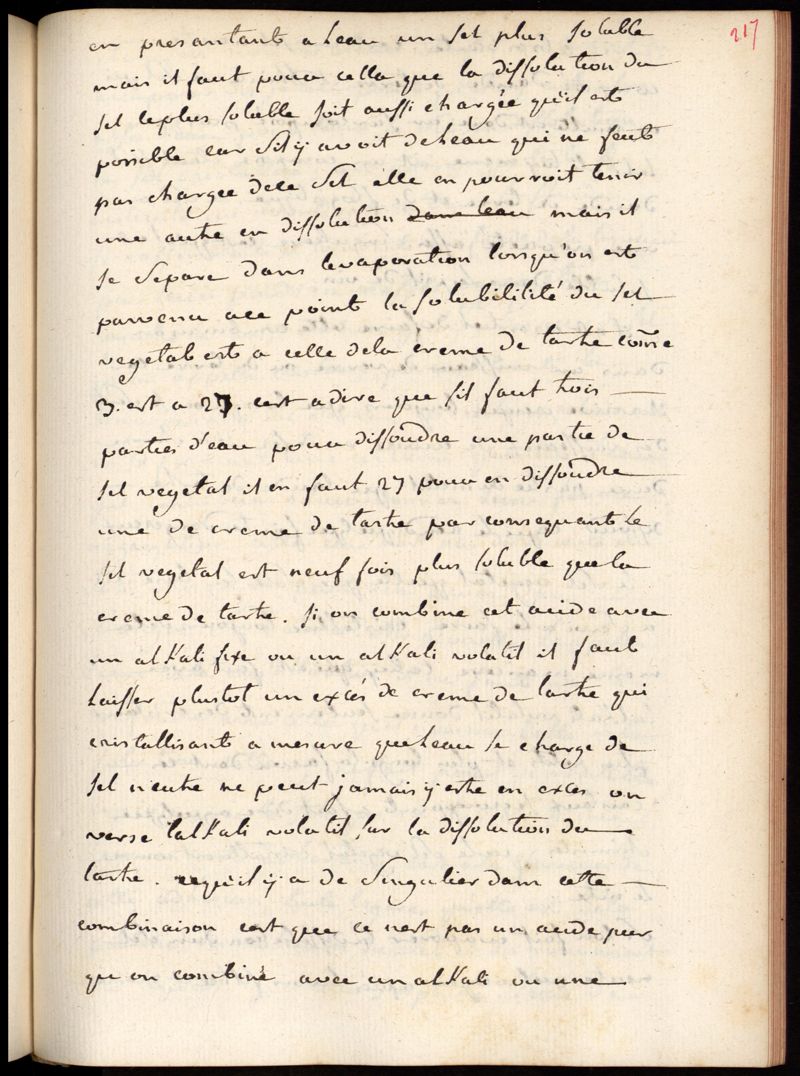 217
en presentant a Leau un sel plus soluble
mais il faut pour cella que la dissolution du
sel le plus soluble soit aussi chargée quil est
possible car sil y avoit de Leau qui ne feut
pas chargee dece sel elle en pourroit tenir
une autre en dissolution dans leau mais il
se separe dans levaporation lorsqu'on est
parvenu ace point la solubililité du sel
vegetal est a celle dela creme de tartre coñe
3. est a 27. cest adire que sil faut trois
parties d'eau pour dissoudre une partie de
sel vegetal il en faut 27 pour en dissoudre
une de creme de tartre par consequant le
sel vegetal est neuf fois plus soluble que la
creme de tartre. si on combine cet acide avec
un alKali fixe ou un alKali volatil il faut
Laisser plustot un excés de creme de tartre qui
cristallisant a mesure que Leau se charge de
sel neutre ne peut jamais y estre en exces on
verse lalKali volatil sur la dissolution du
tartre. cequ'il y a de singulier dans cette
combinaison cest que ce nest pas un acide pur
qu on combiné avec un alKali ou une